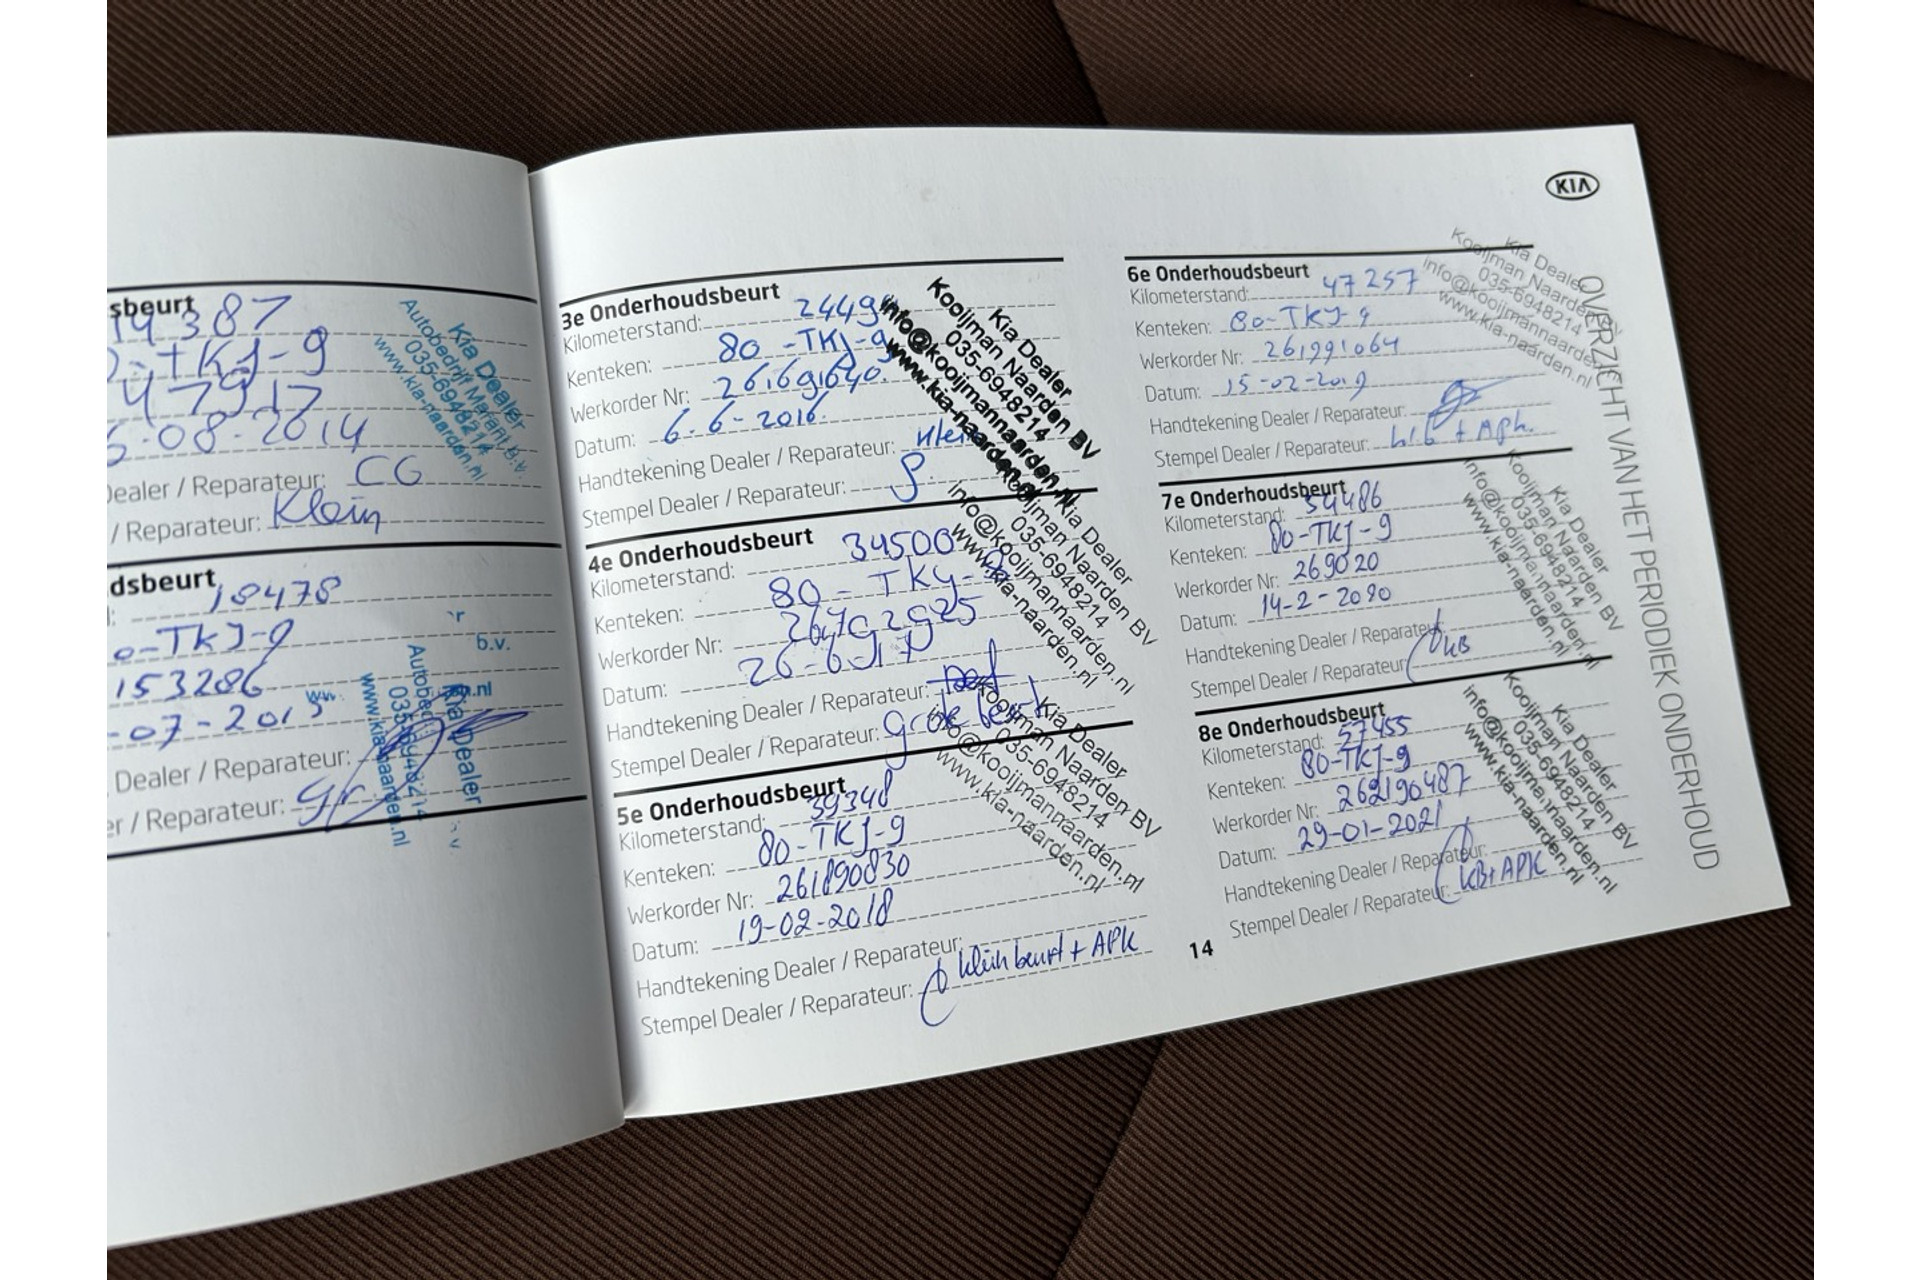 sbeurt
14387
-TKJ-9
47917
-08-2014
Dealer / Reparateur: CG
/ Reparateur: Klein
Kia Dealer
035-6948214
www.kia-naarden.nl
dsbeurt
18478
0-TKJ-9
153286
-07-2015
Dealer / Reparateur:
er / Reparateur: gr
Kia Dealer
www.kia-naarden.nl
KIA
3e Onderhoudsbeurt
Kilometerstand: 2449
Kenteken: 80-TKJ-9
Werkorder Nr: 261691640
Datum: 6-6-2016
Handtekening Dealer / Reparateur: Klein
Stempel Dealer / Reparateur:
Kia Dealer
Kooijman Naarden BV
035-6948214
info@kooijmannaarden.nl
www.kia-naarden.nl
4e Onderhoudsbeurt
Kilometerstand: 34500
Kenteken: 80-TKJ-9
Werkorder Nr:
Datum: 26-6-17
Handtekening Dealer / Reparateur:
Stempel Dealer / Reparateur: grote beurt
Kia Dealer
Kooijman Naarden BV
035-6948214
info@kooijmannaarden.nl
www.kia-naarden.nl
5e Onderhoudsbeurt
Kilometerstand: 39348
Kenteken: 80-TKJ-9
Werkorder Nr: 261890830
Datum: 19-02-2018
Handtekening Dealer / Reparateur: klein beurt + APK
Stempel Dealer / Reparateur:
Kia Dealer
Kooijman Naarden BV
035-6948214
info@kooijmannaarden.nl
www.kia-naarden.nl
6e Onderhoudsbeurt
Kilometerstand: 47257
Kenteken: 80-TKJ-9
Werkorder Nr: 261991064
Datum: 15-02-2019
Handtekening Dealer / Reparateur:
Stempel Dealer / Reparateur: + Apk.
Kia Dealer
Kooijman Naarden BV
035-6948214
info@kooijmannaarden.nl
www.kia-naarden.nl
7e Onderhoudsbeurt
Kilometerstand: 54486
Kenteken: 80-TKJ-9
Werkorder Nr: 269020
Datum: 14-2-2020
Handtekening Dealer / Reparateur:
Stempel Dealer / Reparateur:
Kia Dealer
Kooijman Naarden BV
035-6948214
info@kooijmannaarden.nl
www.kia-naarden.nl
8e Onderhoudsbeurt
Kilometerstand: 57455
Kenteken: 80-TKJ-9
Werkorder Nr: 262190487
Datum: 29-01-2021
Handtekening Dealer / Reparateur:
Stempel Dealer / Reparateur: KB+APK
Kia Dealer
Kooijman Naarden BV
035-6948214
info@kooijmannaarden.nl
www.kia-naarden.nl
OVERZICHT VAN HET PERIODIEK ONDERHOUD
14